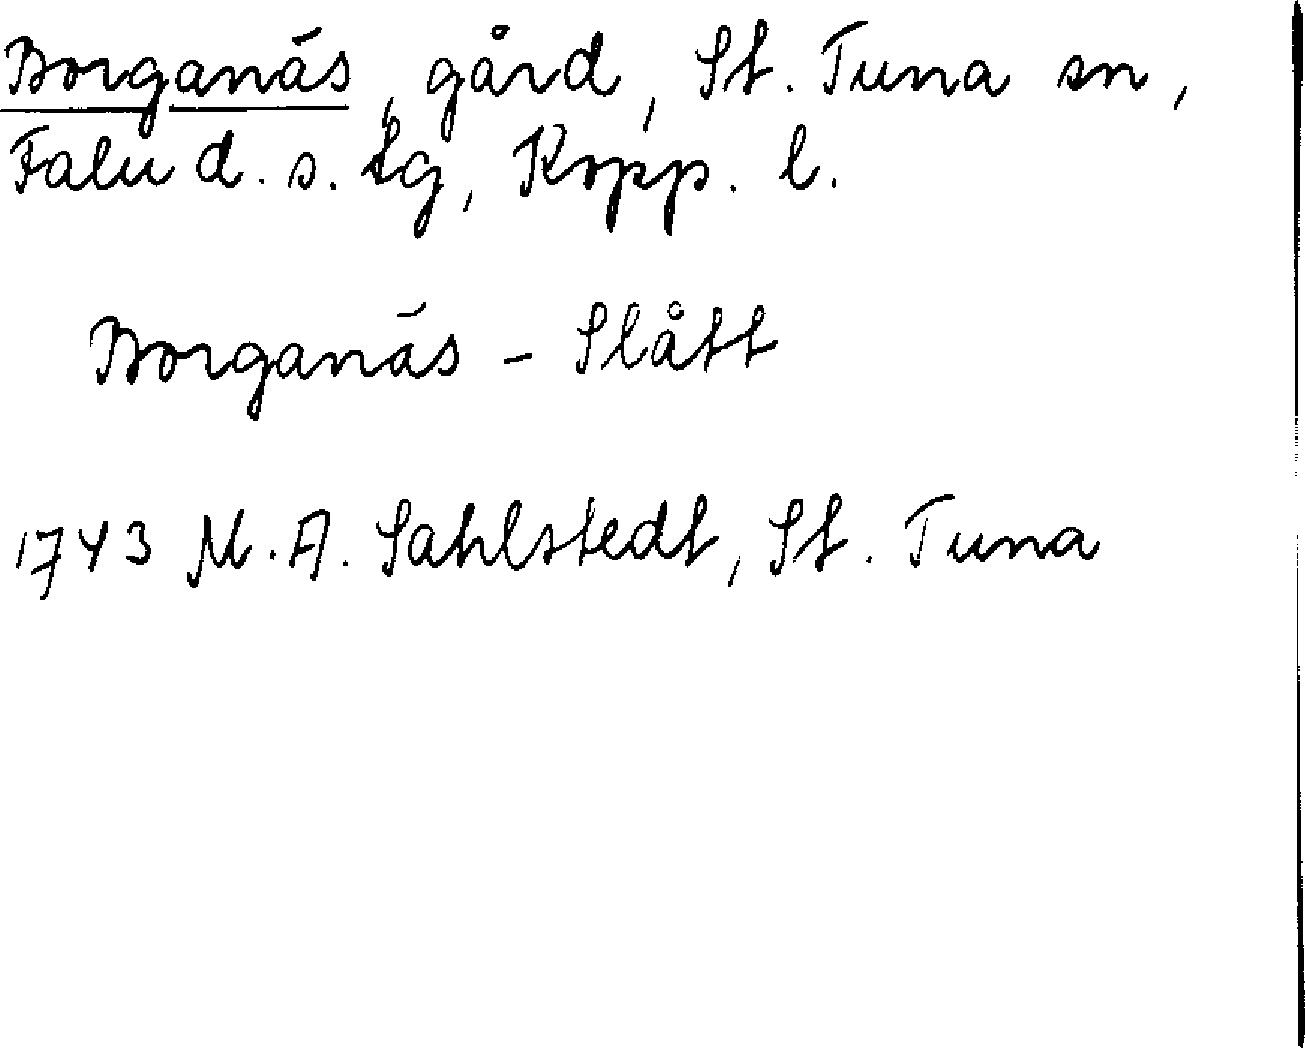 Borganäs, gård, St. Tuna sn,
Falu d. s. tg, Kopp. l.
Borganäs - Slått
1743 M. A. Sahlstedt, St. Tuna